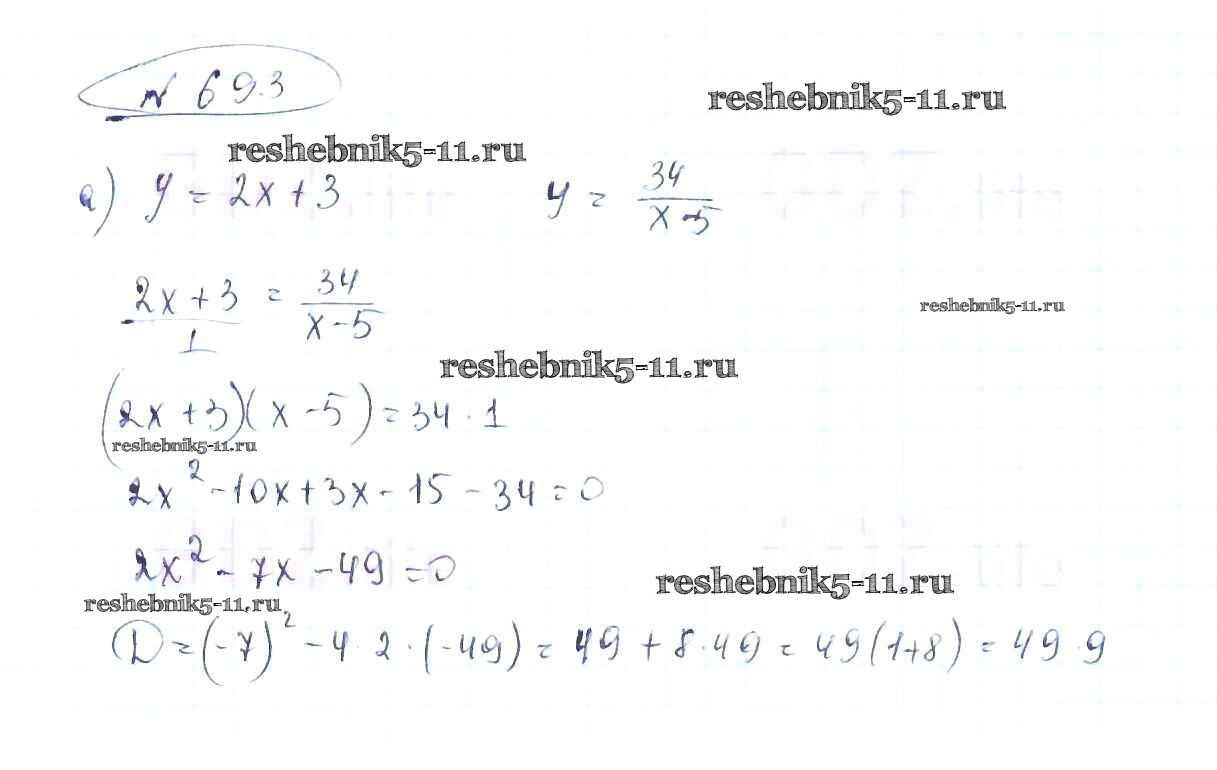 № 69.3
reshebnik5-11.ru
reshebnik5-11.ru
а) y = 2x + 3 y = 34/(x - 5)
(2x + 3)/1 = 34/(x - 5)
reshebnik5-11.ru
reshebnik5-11.ru
(2x + 3)(x - 5) = 34 · 1
reshebnik5-11.ru
2x² - 10x + 3x - 15 - 34 = 0
2x² - 7x - 49 = 0
reshebnik5-11.ru
reshebnik5-11.ru
D = (-7)² - 4 · 2 · (-49) = 49 + 8 · 49 = 49(1+8) = 49 · 9